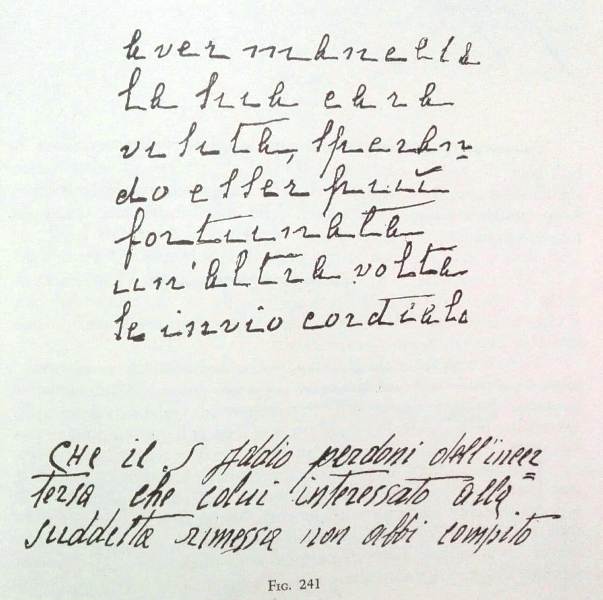 aver mancata
la sua cara
visita, speran=
do esser più
fortunata
un'altra volta
le invio cordiale
CHe il S Iddio perdoni dell'incer=
tersa che colui interessato alla
suddetta rimessa non abbi compito
FIG. 241